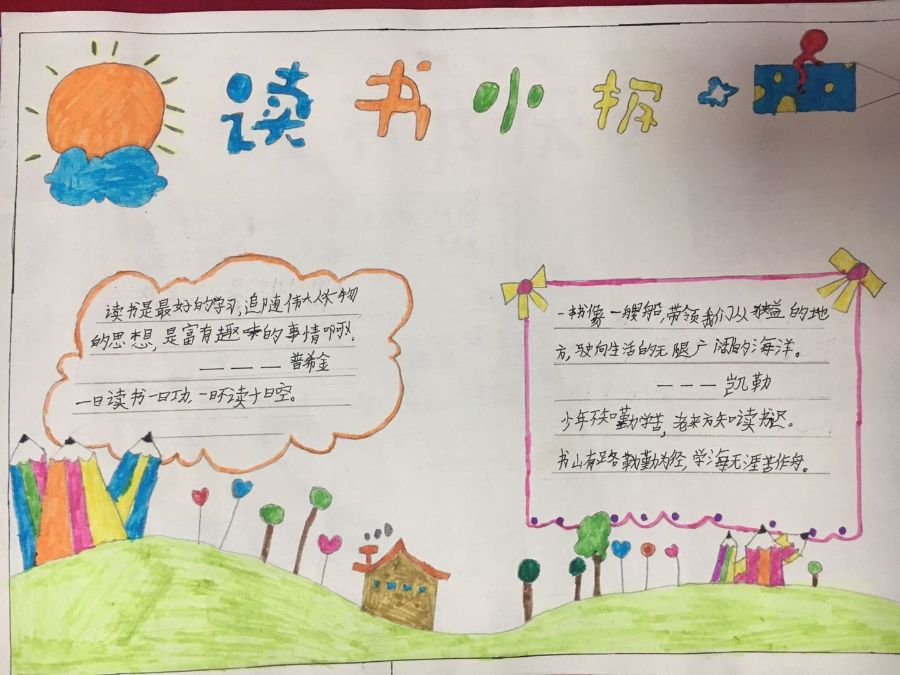 读书小报
读书是最好的学习,追随伟大人物
的思想,是富有趣味的事情啊!
————普希金
一日读书一日功,一日不读十日空。
一书像一艘船,带领我们从狭益的地
方,驶向生活的无限广阔的海洋。
———凯勒
少年不知勤学苦,老来方知读书迟。
书山有路勤勤为径,学海无涯苦作舟。